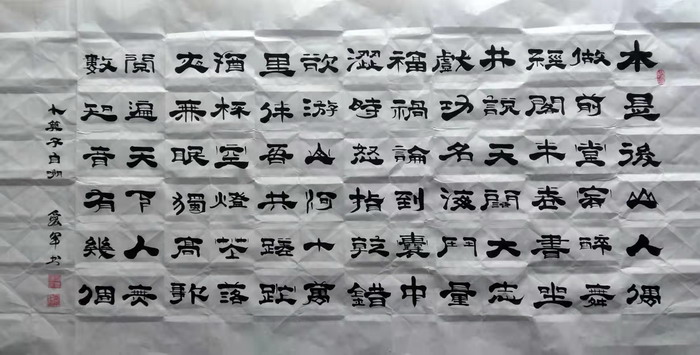 本是後山人偶
做前堂客醉舞
經閣半卷書坐
井說天闊大志
戲功名海鬥量
福禍論到囊中
澀時怒指乾錯
欲游山河十萬
里伴吾共蹉跎
酒杯空燈花落
夜無眠獨高歌
閱遍天下人無
數知音有幾個
卜算子自嘲